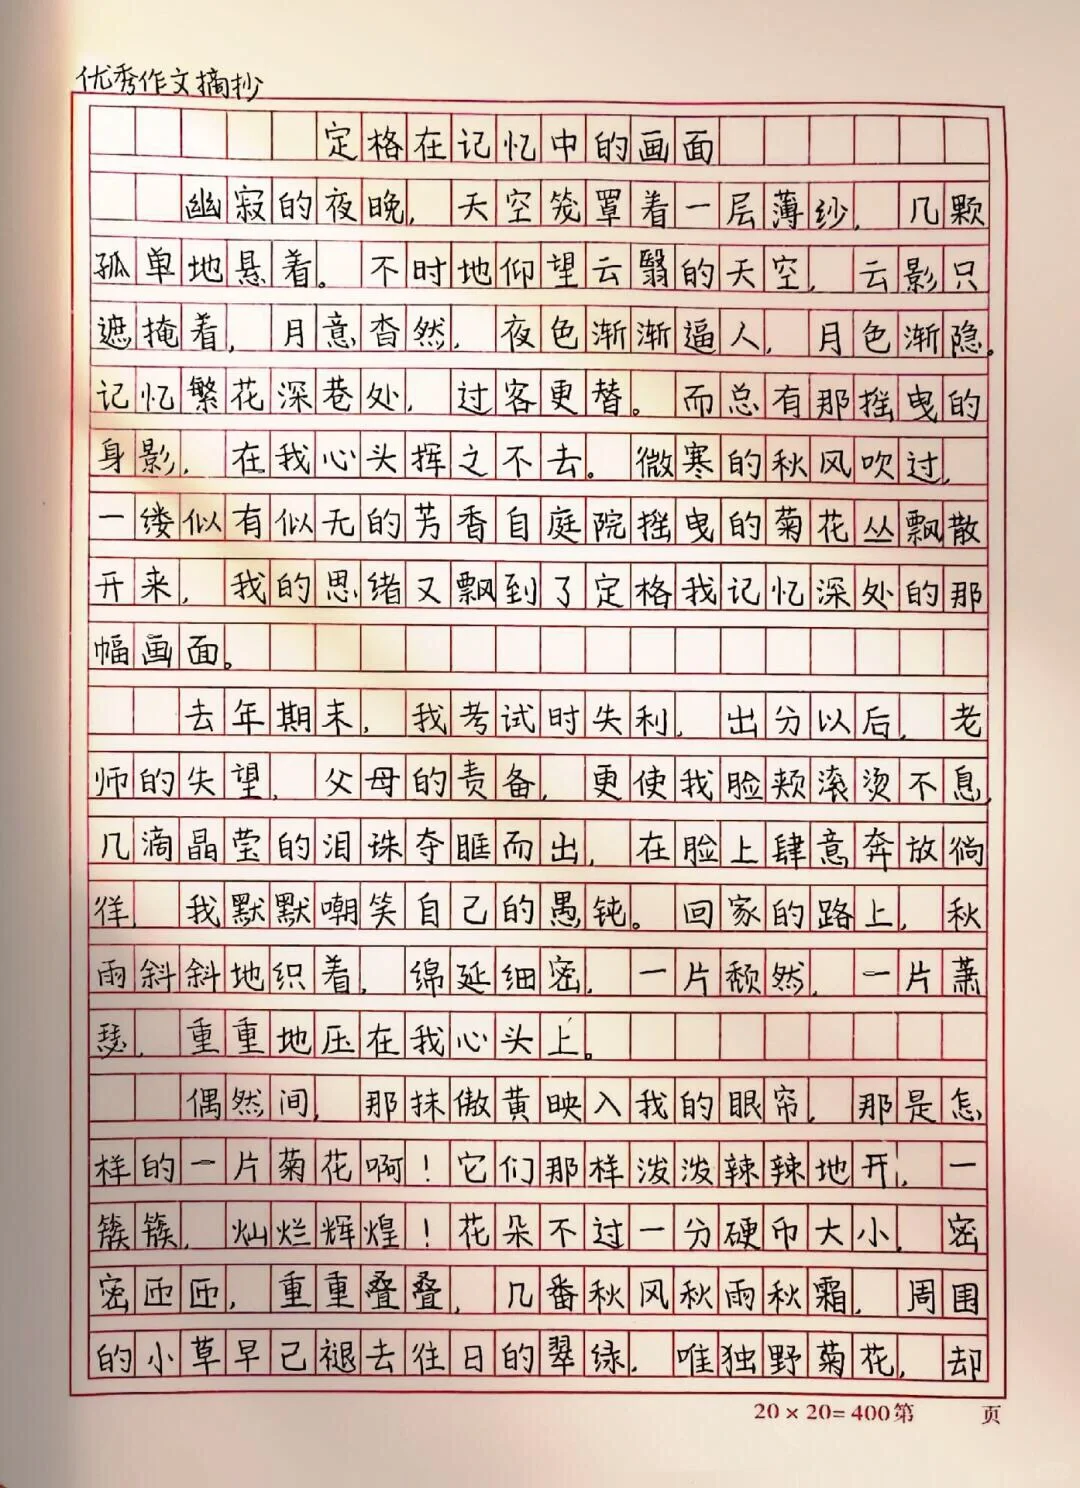 优秀作文摘抄
定格在记忆中的画面
幽寂的夜晚，天空笼罩着一层薄纱，几颗
孤单地悬着。不时地仰望云翳的天空，云影只
遮掩着，月意杳然，夜色渐渐逼人，月色渐隐。
记忆繁花深巷处，过客更替。而总有那摇曳的
身影，在我心头挥之不去。微寒的秋风吹过，
一缕似有似无的芳香自庭院摇曳的菊花丛飘散
开来，我的思绪又飘到了定格我记忆深处的那
幅画面。
去年期末，我考试时失利，出分以后，老
师的失望，父母的责备，更使我脸颊滚烫不息，
几滴晶莹的泪珠夺眶而出，在脸上肆意奔放徜
徉，我默默嘲笑自己的愚钝。回家的路上，秋
雨斜斜地织着，绵延细密，一片颓然，一片萧
瑟，重重地压在我心头上。
偶然间，那抹傲黄映入我的眼帘，那是怎
样的一片菊花啊！它们那样泼泼辣辣地开，一
簇簇，灿烂辉煌！花朵不过一分硬币大小，密
密匝匝，重重叠叠，几番秋风秋雨秋霜，周围
的小草早已褪去往日的翠绿，唯独野菊花，却
20×20=400第 页